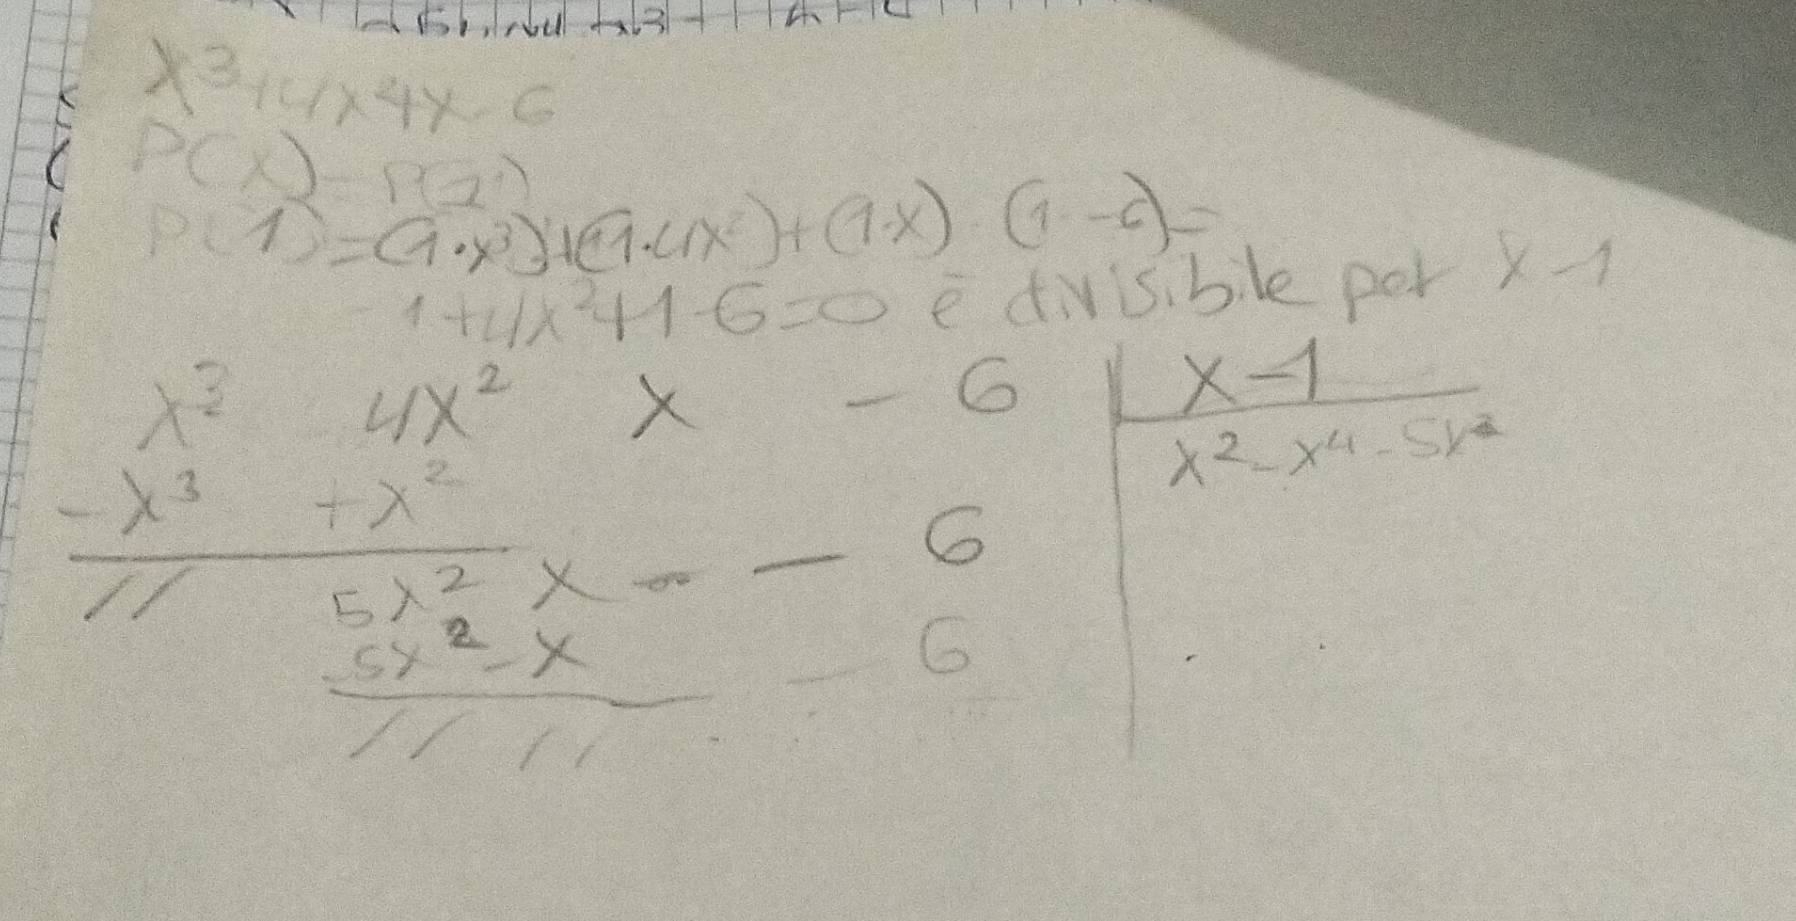 x³+4x4x-6
P(x)=P(1)
P(1)=(1·x³)+(1·4x²)+(1·x)·(1·-6)=
1+4x²+1-6=0 è divisibile per x-1
x³ 4x² x - 6 x-1
-x³ +x² x²-x⁴-5x²
// 5x² x - - 6
-5x²-x - 6
// //